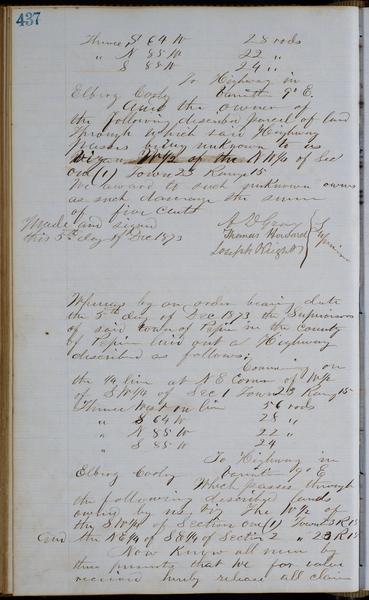 437
Thence S 64 W 28 rods
" N 85 W 22 "
S 85 W 24 "
To Highway in
Elberg Cooly
And the owner of
the following described parcel of land
through which said Highway
passes being unknown to us
Viz W 1/2 of the N W 1/4 of Sec
one (1) Town 23 Range 15
We award to such unknown owner
as such damage the sum
of five cents
Made and signed
this 5th day of Dec 1873
A D Gray
Thomas Howard
Joseph Knights
Whereas by an order bearing date
the 5th day of Dec 1873 the Supervisors
of said town of Pepin in the county
of Pepin laid out a Highway
described as follows;
Comencing on
the 1/4 line at N E Corner of W 1/2
of S W 1/4 of Sec 1 Town 23 Rang 15
Thence West on line 56 rods
" S 64 W 28 "
" N 85 W 22 "
" S 85 W 24
To Highway in
Elberg Cooly
Which passes through
the following described lands
owned by us, viz The W 1/2 of
the S W 1/4 of Section one (1) Town 23 R 15
and the N E 1/4 of S E 1/4 of Section 2 " 23 R 15
Now Know all men by
these presents that We for value
received hereby release all claim